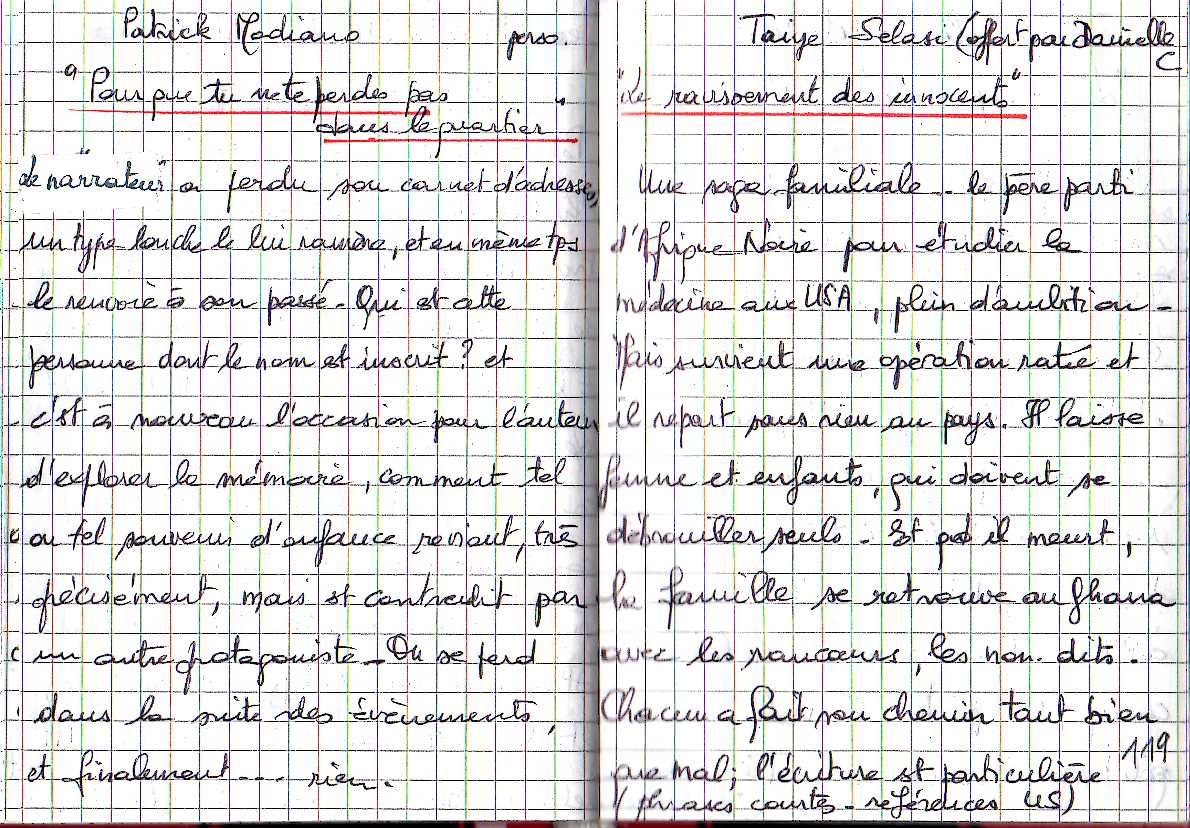 Patrick Modiano perso.
"Pour que tu ne te perdes pas
dans le quartier"
Le "narrateur" a perdu son carnet d'adresses,
un type louche le lui ramène, et en même tps
le renvoie à son passé - Qui est cette
personne dont le nom est inscrit ? et
c'est à nouveau l'occasion pour l'auteur
d'explorer la mémoire, comment tel
ou tel souvenir d'enfance revient, très
précisément, mais est contredit par
un autre protagoniste - On se perd
dans la suite des évènements,
et finalement .... rien.
Taiye Selasi (offert par Danielle
C
"Le ravissement des innocents"
Une saga familiale - le père parti
d'Afrique Noire pour étudier la
médecine aux USA, plein d'ambition -
Mais survient une opération ratée et
il repart sans rien au pays. Il laisse
femme et enfants, qui doivent se
débrouiller seuls - Et qd il meurt,
la famille se retrouve au Ghana
avec les rancœurs, les non-dits -
Chacun a fait son chemin tant bien
que mal; l'écriture est particulière
(phrases courtes - références US)
119